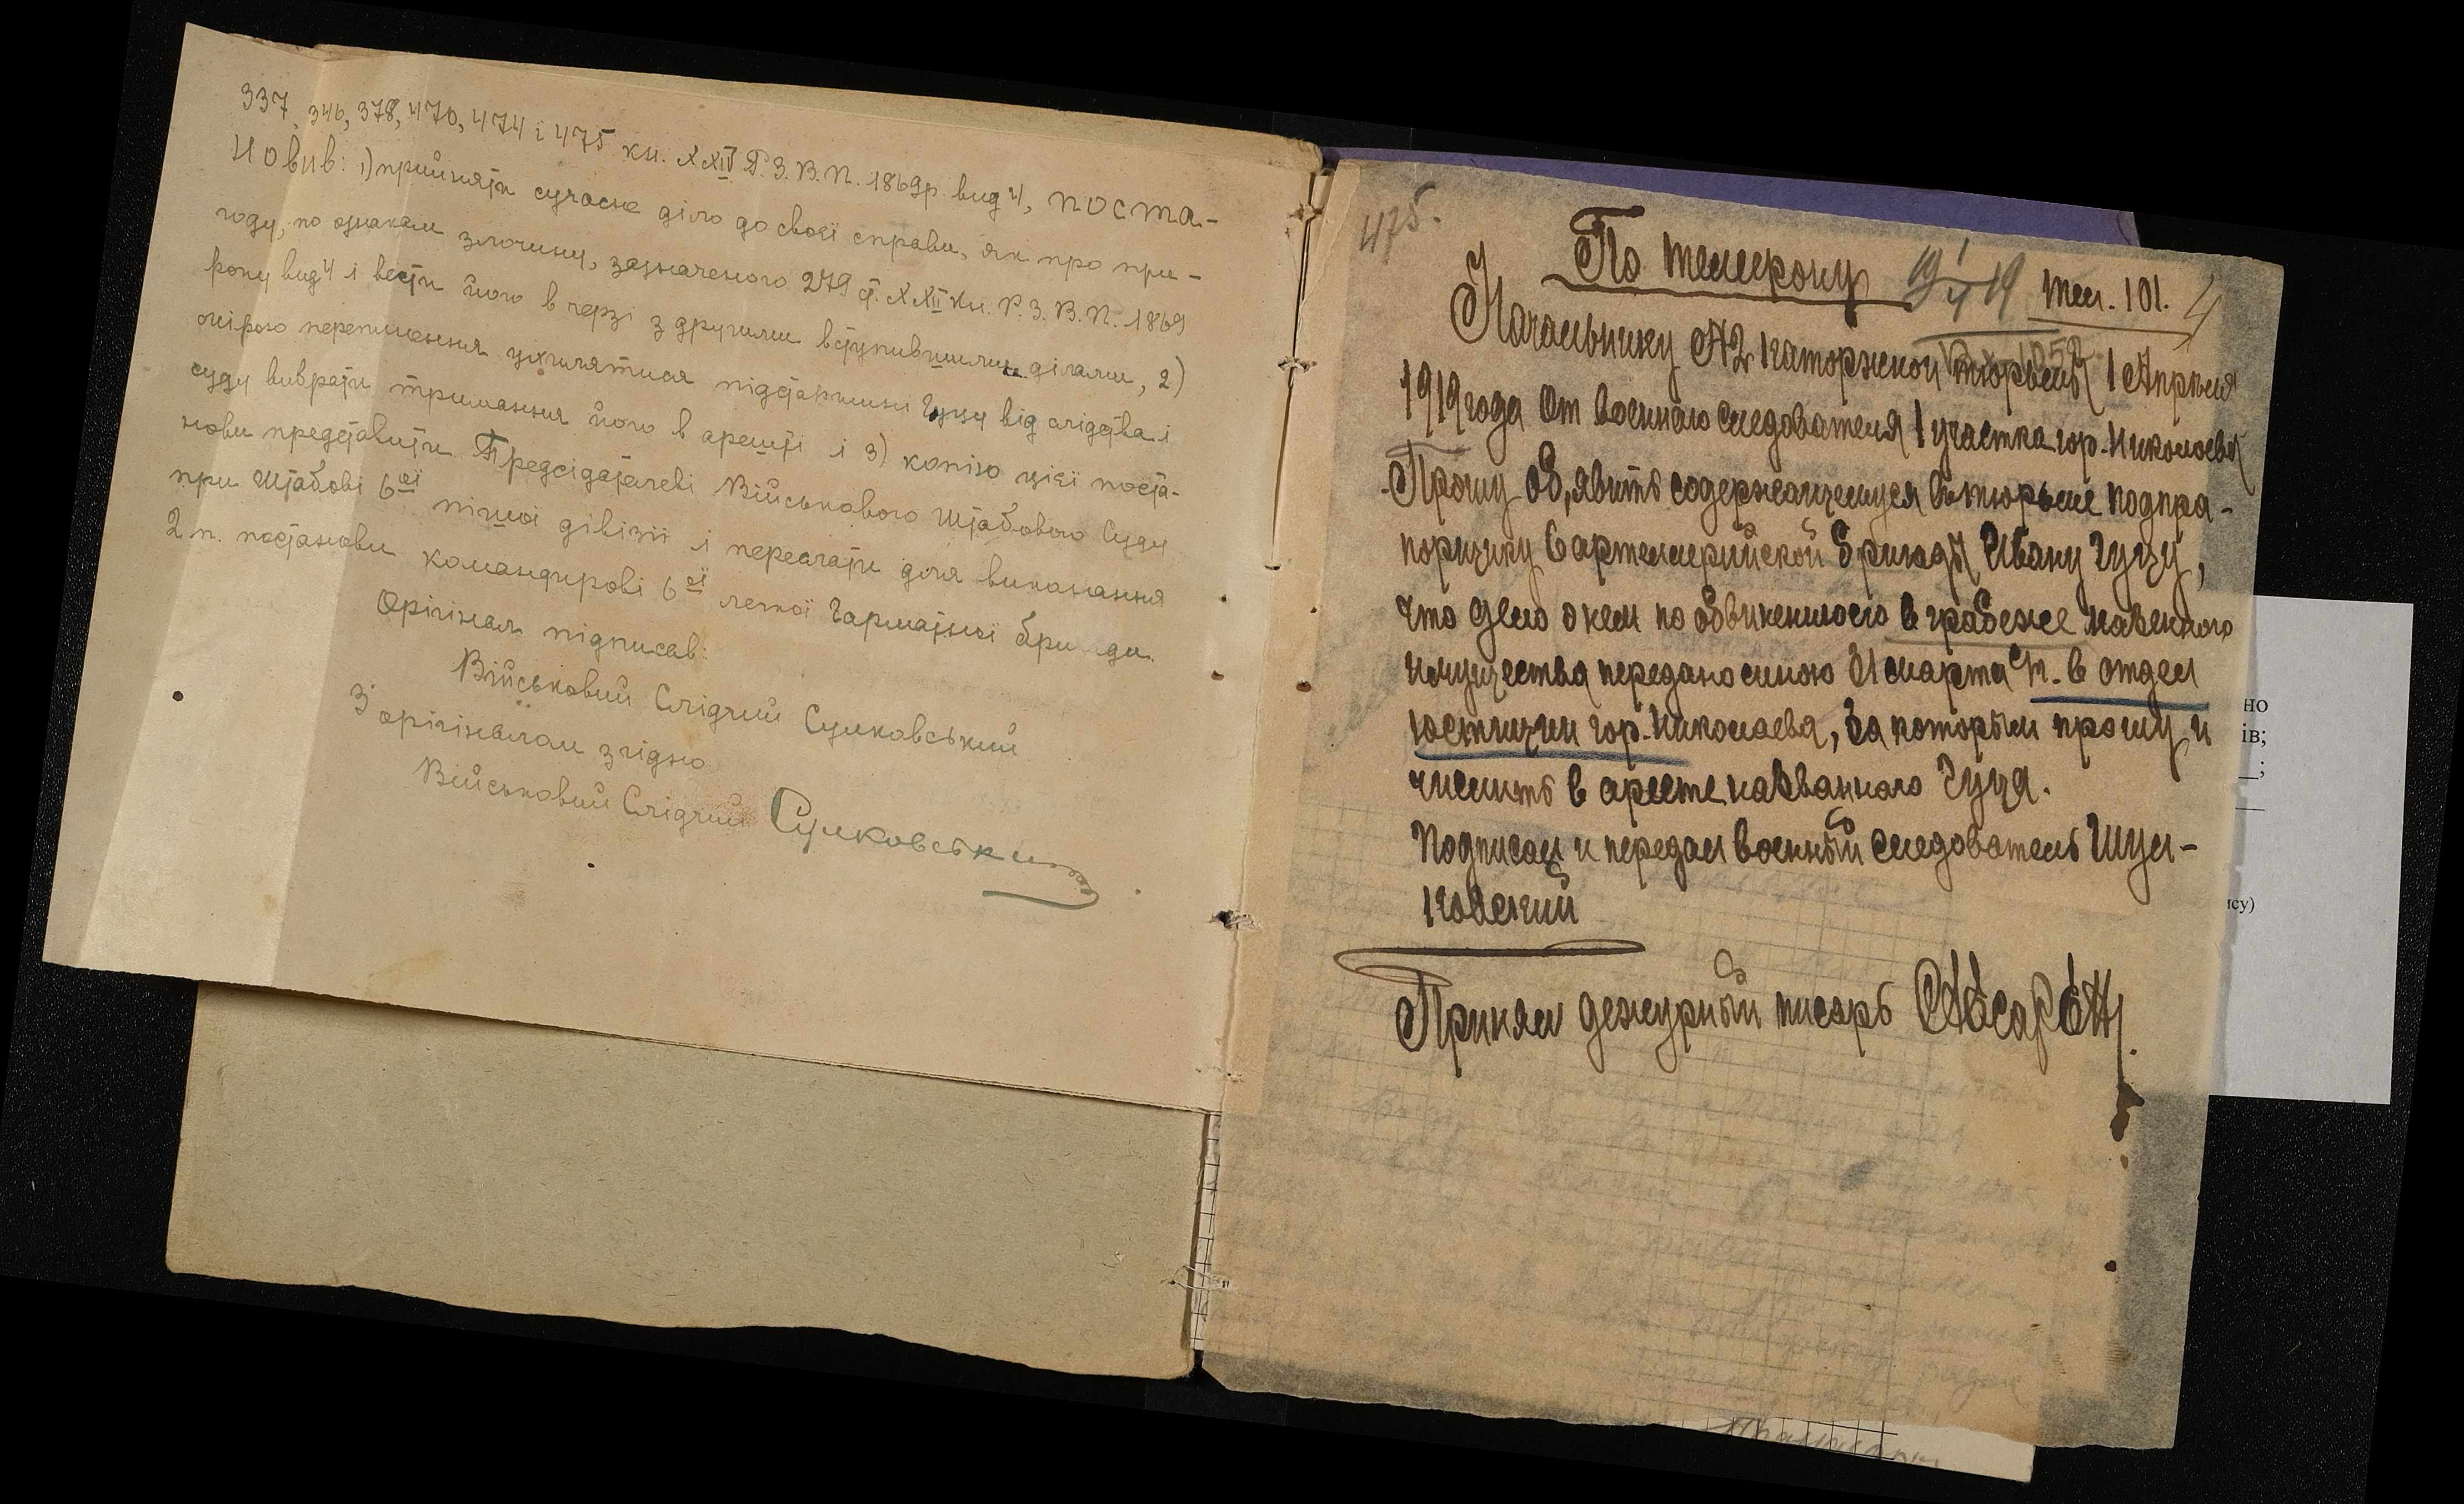 337, 346, 378, 470, 474 і 475 кн. XXIV С.З.В.П. 1869р. вид 4, поста-
новив: 1) прийняти сучасне діло до своєї справи, як про при-
году, по ознакам злочину, зазначеного 279 ст. XXII кн. С.З.В.П. 1869
року вид 4 і вести його в черзі з другими вступившими ділами, 2)
мірою перепинення ухилятися підсудному Гуцу від слідства і
суду вибрати тримання його в арешті і 3) копію цієї поста-
нови представити Предсідателеві Військового Штабового Суду
при Штабові 6ої пішої дівізії і переслати для виконання
2 п. постанови командирові 6ої легкої Гарматної бригади.
Орігінал підписав:
Військовий Слідчий Сулковський
З орігіналом згідно
Військовий Слідчий Сулковський
475.
По телефону
19 1/4 19
Тел. 101.
4
Начальнику каторжной тюрьмы 1 Апреля
1919 года От военного следователя 1 участка гор. Николаева
Прошу об,явить содержащемуся в тюрьме подпра-
порщику 6 артелерийской бригады Ивану Гуцу,
что дело о нем по обвинению его в грабеже казенного
имущества передано мною 31 марта с.г. в отдел
юстиции гор. Николаева, за которым прошу и
числить в аресте названного Гуца.
Подписал и передал военный следователь Шул-
ковский
Принял дежурный писарь
но
ів;
ису)